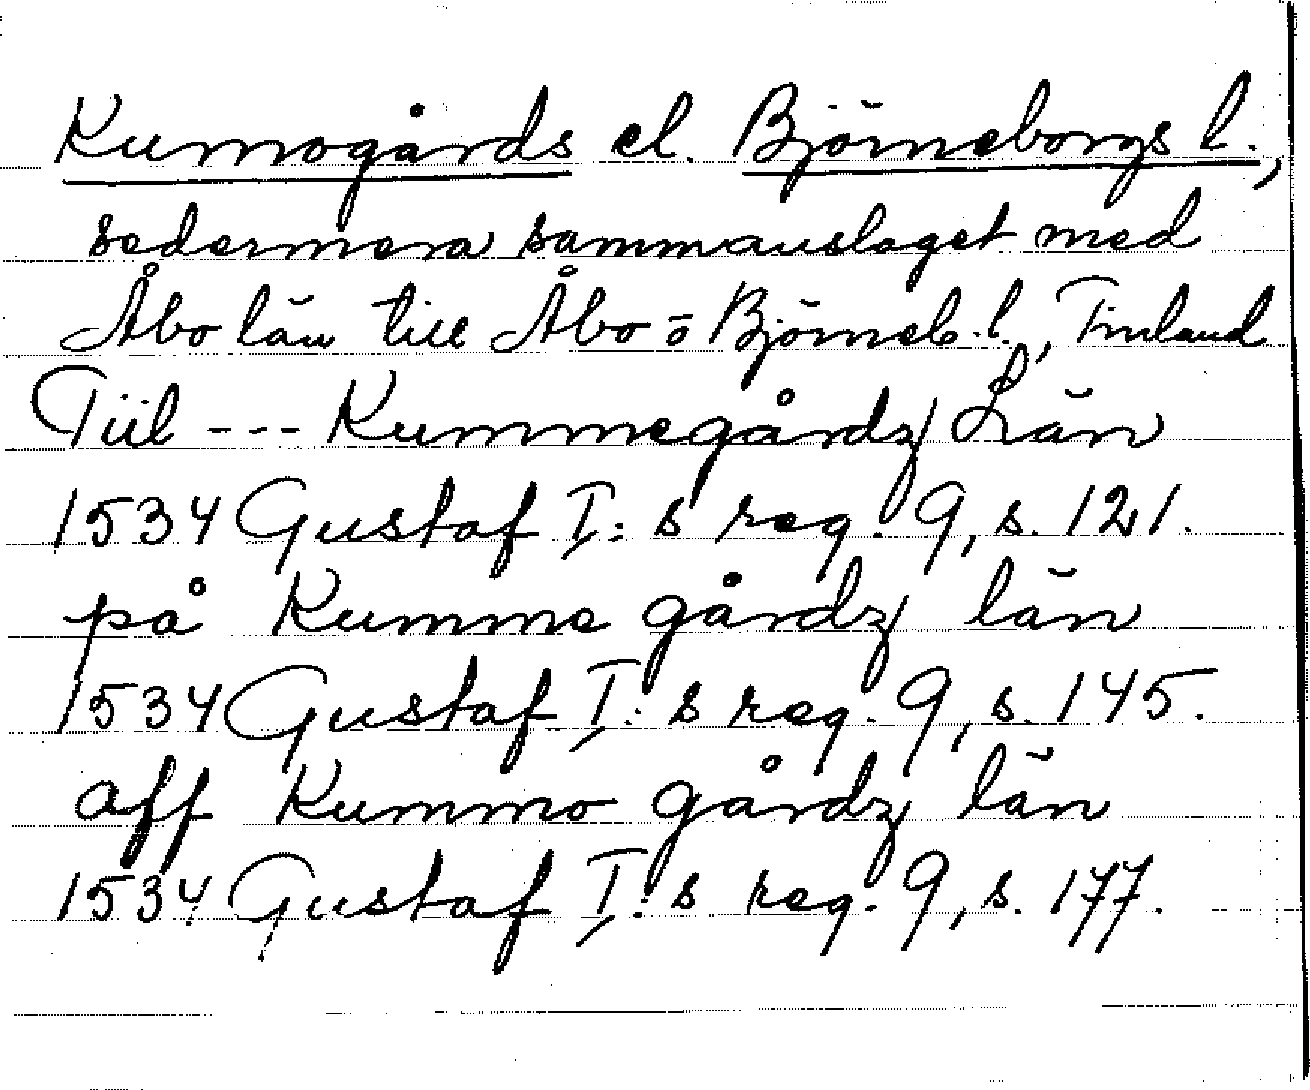 Kumogårds el. Björneborgs l.,
sedermera sammanslaget med
Åbo län till Åbo o Björneb. l., Finland
Tiil --- Kummegårdz Län
1534 Gustaf I:s reg. 9, s. 121.
på Kumme gårdz län
1534 Gustaf I:s reg. 9, s. 145.
aff Kummo gårdz län
1534 Gustaf I:s reg. 9, s. 177.